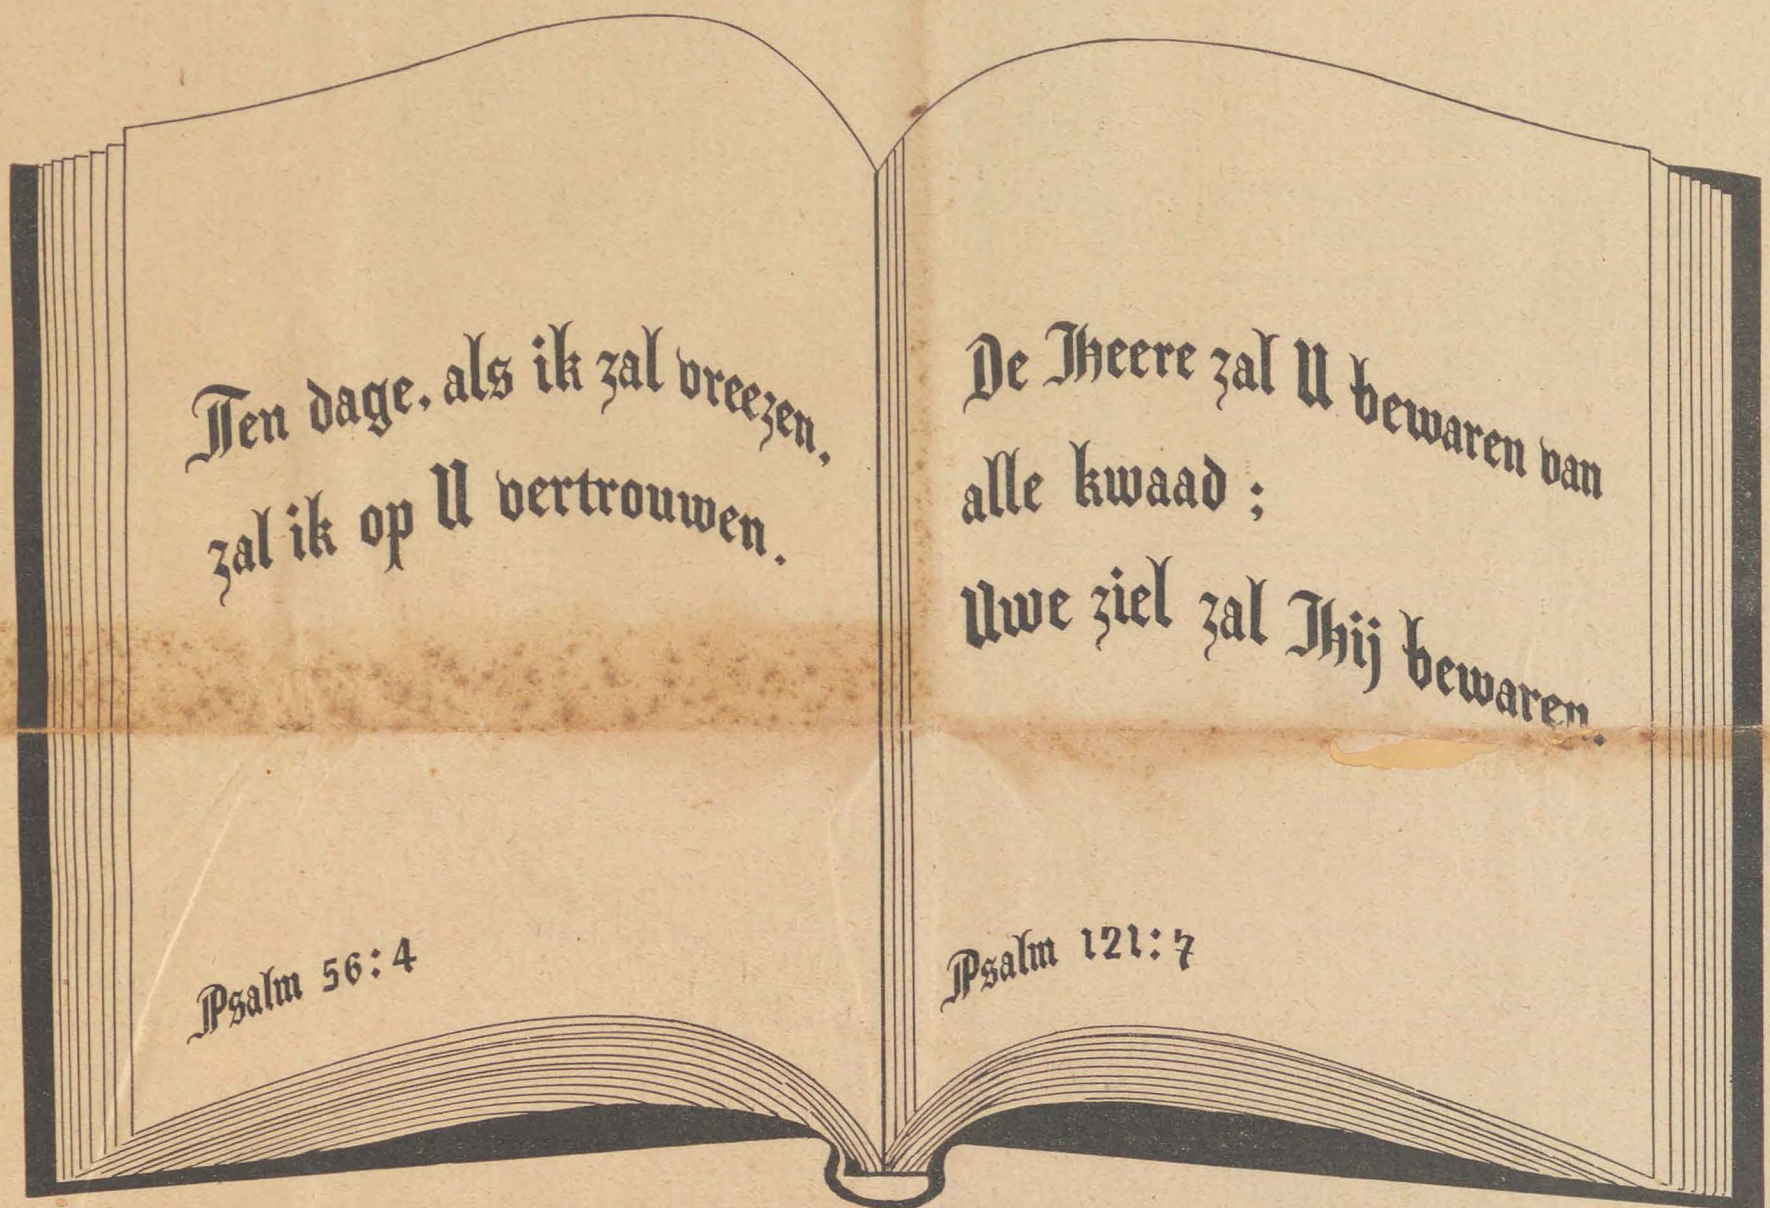 Ten dage, als ik zal vreezen,
zal ik op U vertrouwen.
Psalm 56:4
De Heere zal U bewaren van
alle kwaad ;
Uwe ziel zal Hij bewaren.
Psalm 121:7